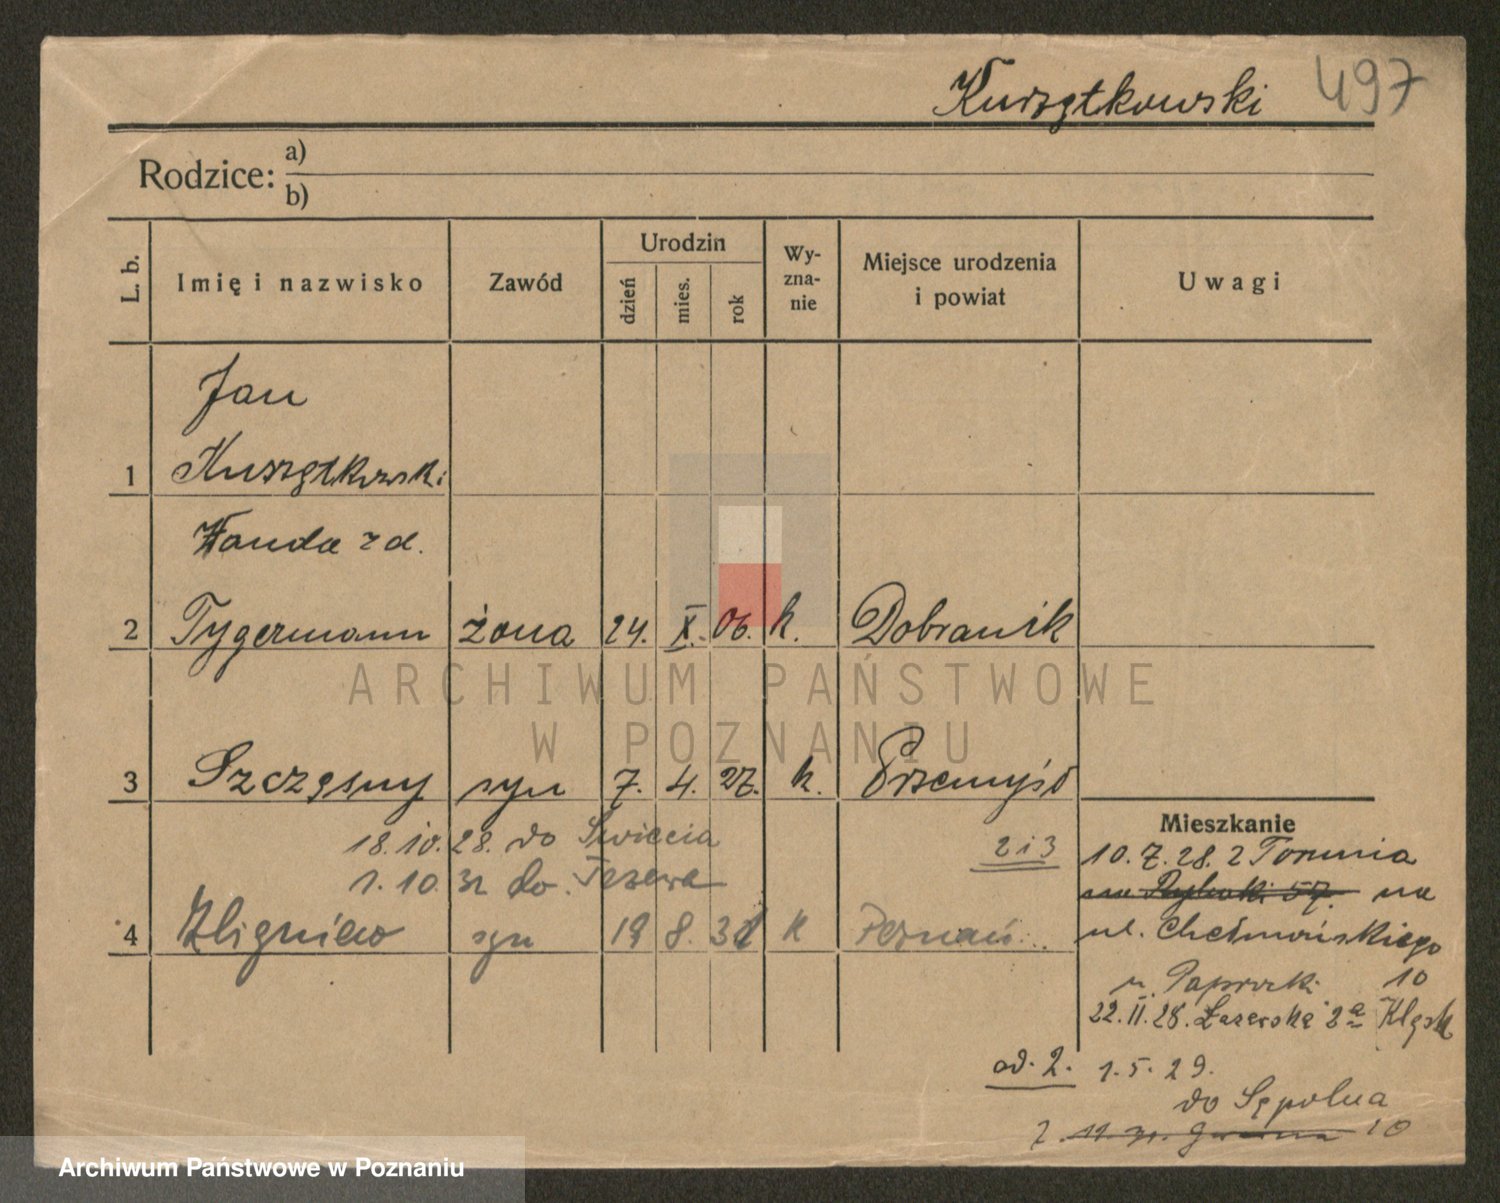 Kurzętkowski 497
Rodzice: a)
b)
L. b.
Imię i nazwisko
Zawód
Urodzin
dzień
mies.
rok
Wy-
zna-
nie
Miejsce urodzenia
i powiat
Uwagi
Jan
1 Kurzętkowski
Wanda z d.
2 Tygermann żona 24. X. 06. k. Dobranik
ARCHIWUM PAŃSTWOWE
W POZNANIU
3 Szczęsny syn 7. 4. 27. k. Przemyśl
18.10.28. do Świecia
1.10.32 do
2 i 3
4 Zbigniew syn 19 8. k Poznań
Mieszkanie
10.7.28. z Torunia
na Rybaki 57. na
ul. Chełmońskiego
u. Paprocki 10
22.11.28. Łazarska 2a
od. 2. 1.5.29.
do Sępolna
10
Archiwum Państwowe w Poznaniu